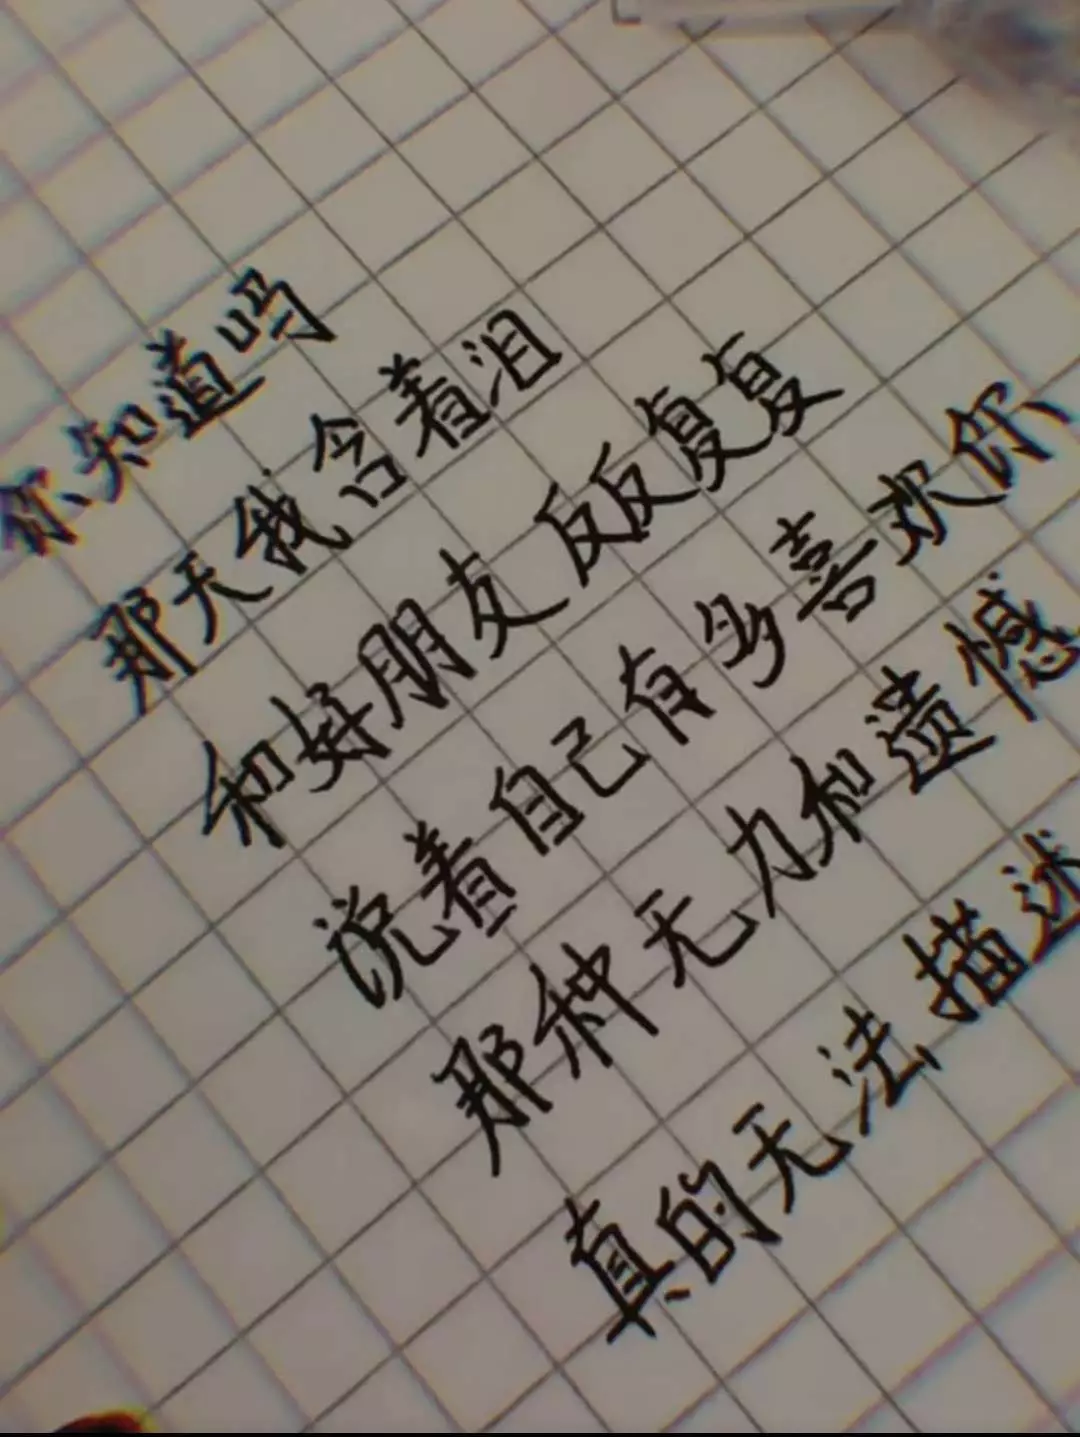 你知道吗
那天我含着泪
和好朋友反反复复
说着自己有多喜欢你
那种无力和遗憾
真的无法描述